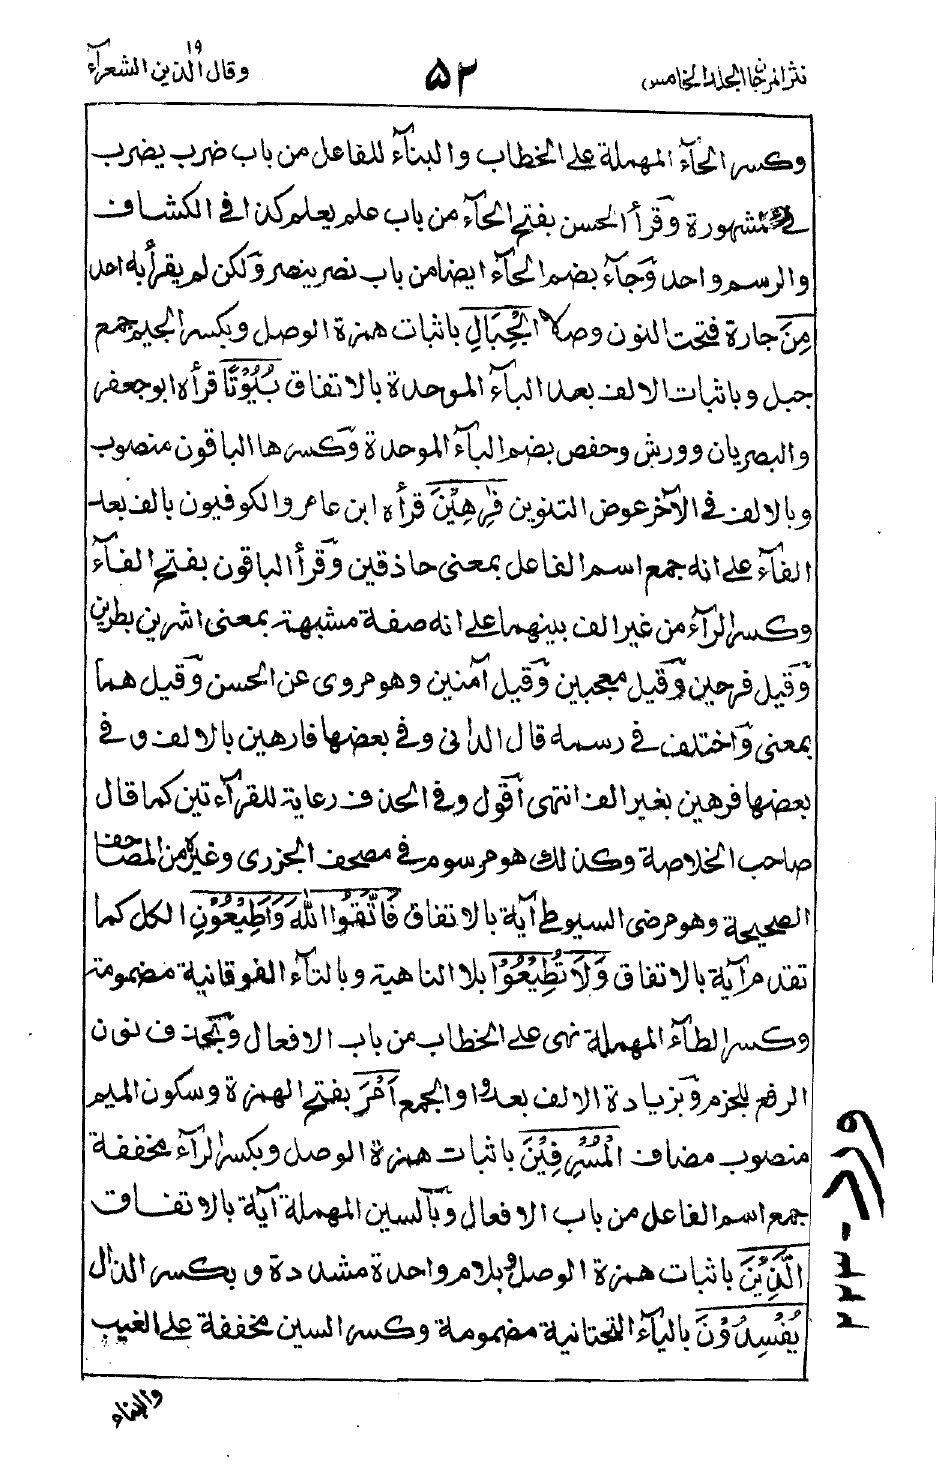 نثر المرجان الجلد الخامس ۵۲ وقال الذين ۱۹ الشعرآء
وكسر الحآء المهملة على الخطاب والبنآء للفاعل من باب ضرب يضرب
مشهورة وقرأ الحسن بفتح الحآء من باب علم يعلم كذا فى الكشاف
والرسم واحد وجآء بضم الحآء ايضا من باب نصر ينصر ولكن لم يقرأ به احد
مِنَ جارة فتحت النون وصلا الْجِبَالِ باثبات همزة الوصل وبكسر الجيم جمع
جبل وباثبات الالف بعد البآء الموحدة بالاتفاق بُيُوْتًا قرأه ابو جعفر
والبصريان وورش وحفص بضم البآء الموحدة وكسرها الباقون منصوب
وبالالف فى الآخر عوض التنوين فٰرِهِيْنَ قرأه ابن عامر والكوفيون بالف بعد
الفآء على انه جمع اسم الفاعل بمعنى حاذقين وقرأ الباقون بفتح الفآء
وكسر الرآء من غير الف بينهما على انه صفة مشبهة بمعنى اشرين بطرين
وقيل فرحين وقيل معجبين وقيل آمنين وهو مروى عن الحسن وقيل هما
بمعنى واختلف فى رسمه قال الدانى وفى بعضها فارهين بالالف وفى
بعضها فرهين بغير الف انتهى اقول وفى الحذف رعاية للقرآءتين كما قال
صاحب الخلاصة وكذلك هو مرسوم فى مصحف الجزرى وغيره من المصاحف
الصحيحة وهو مرضى السيوطى آية بالاتفاق فَاتَّقُوا اللهَ وَاَطِيْعُوْنِ الكل كما
تقدم آية بالاتفاق وَلَا تُطِيْعُوْا بلا الناهية وبالتآء الفوقانية مضمومة
وكسر الطآء المهملة نهى على الخطاب من باب الافعال وبحذف نون
الرفع للجزم وبزيادة الالف بعد واو الجمع اَمْرَ بفتح الهمزة وسكون الميم
منصوب مضاف الْمُسْرِفِيْنَ باثبات همزة الوصل وبكسر الرآء مخففة
جمع اسم الفاعل من باب الافعال وبالسين المهملة آية بالاتفاق
الَّذِيْنَ باثبات همزة الوصل وبلام واحدة مشددة وبكسر الذال
يُفْسِدُوْنَ باليآء التحتانية مضمومة وكسر السين مخففة على الغيب
والبناء